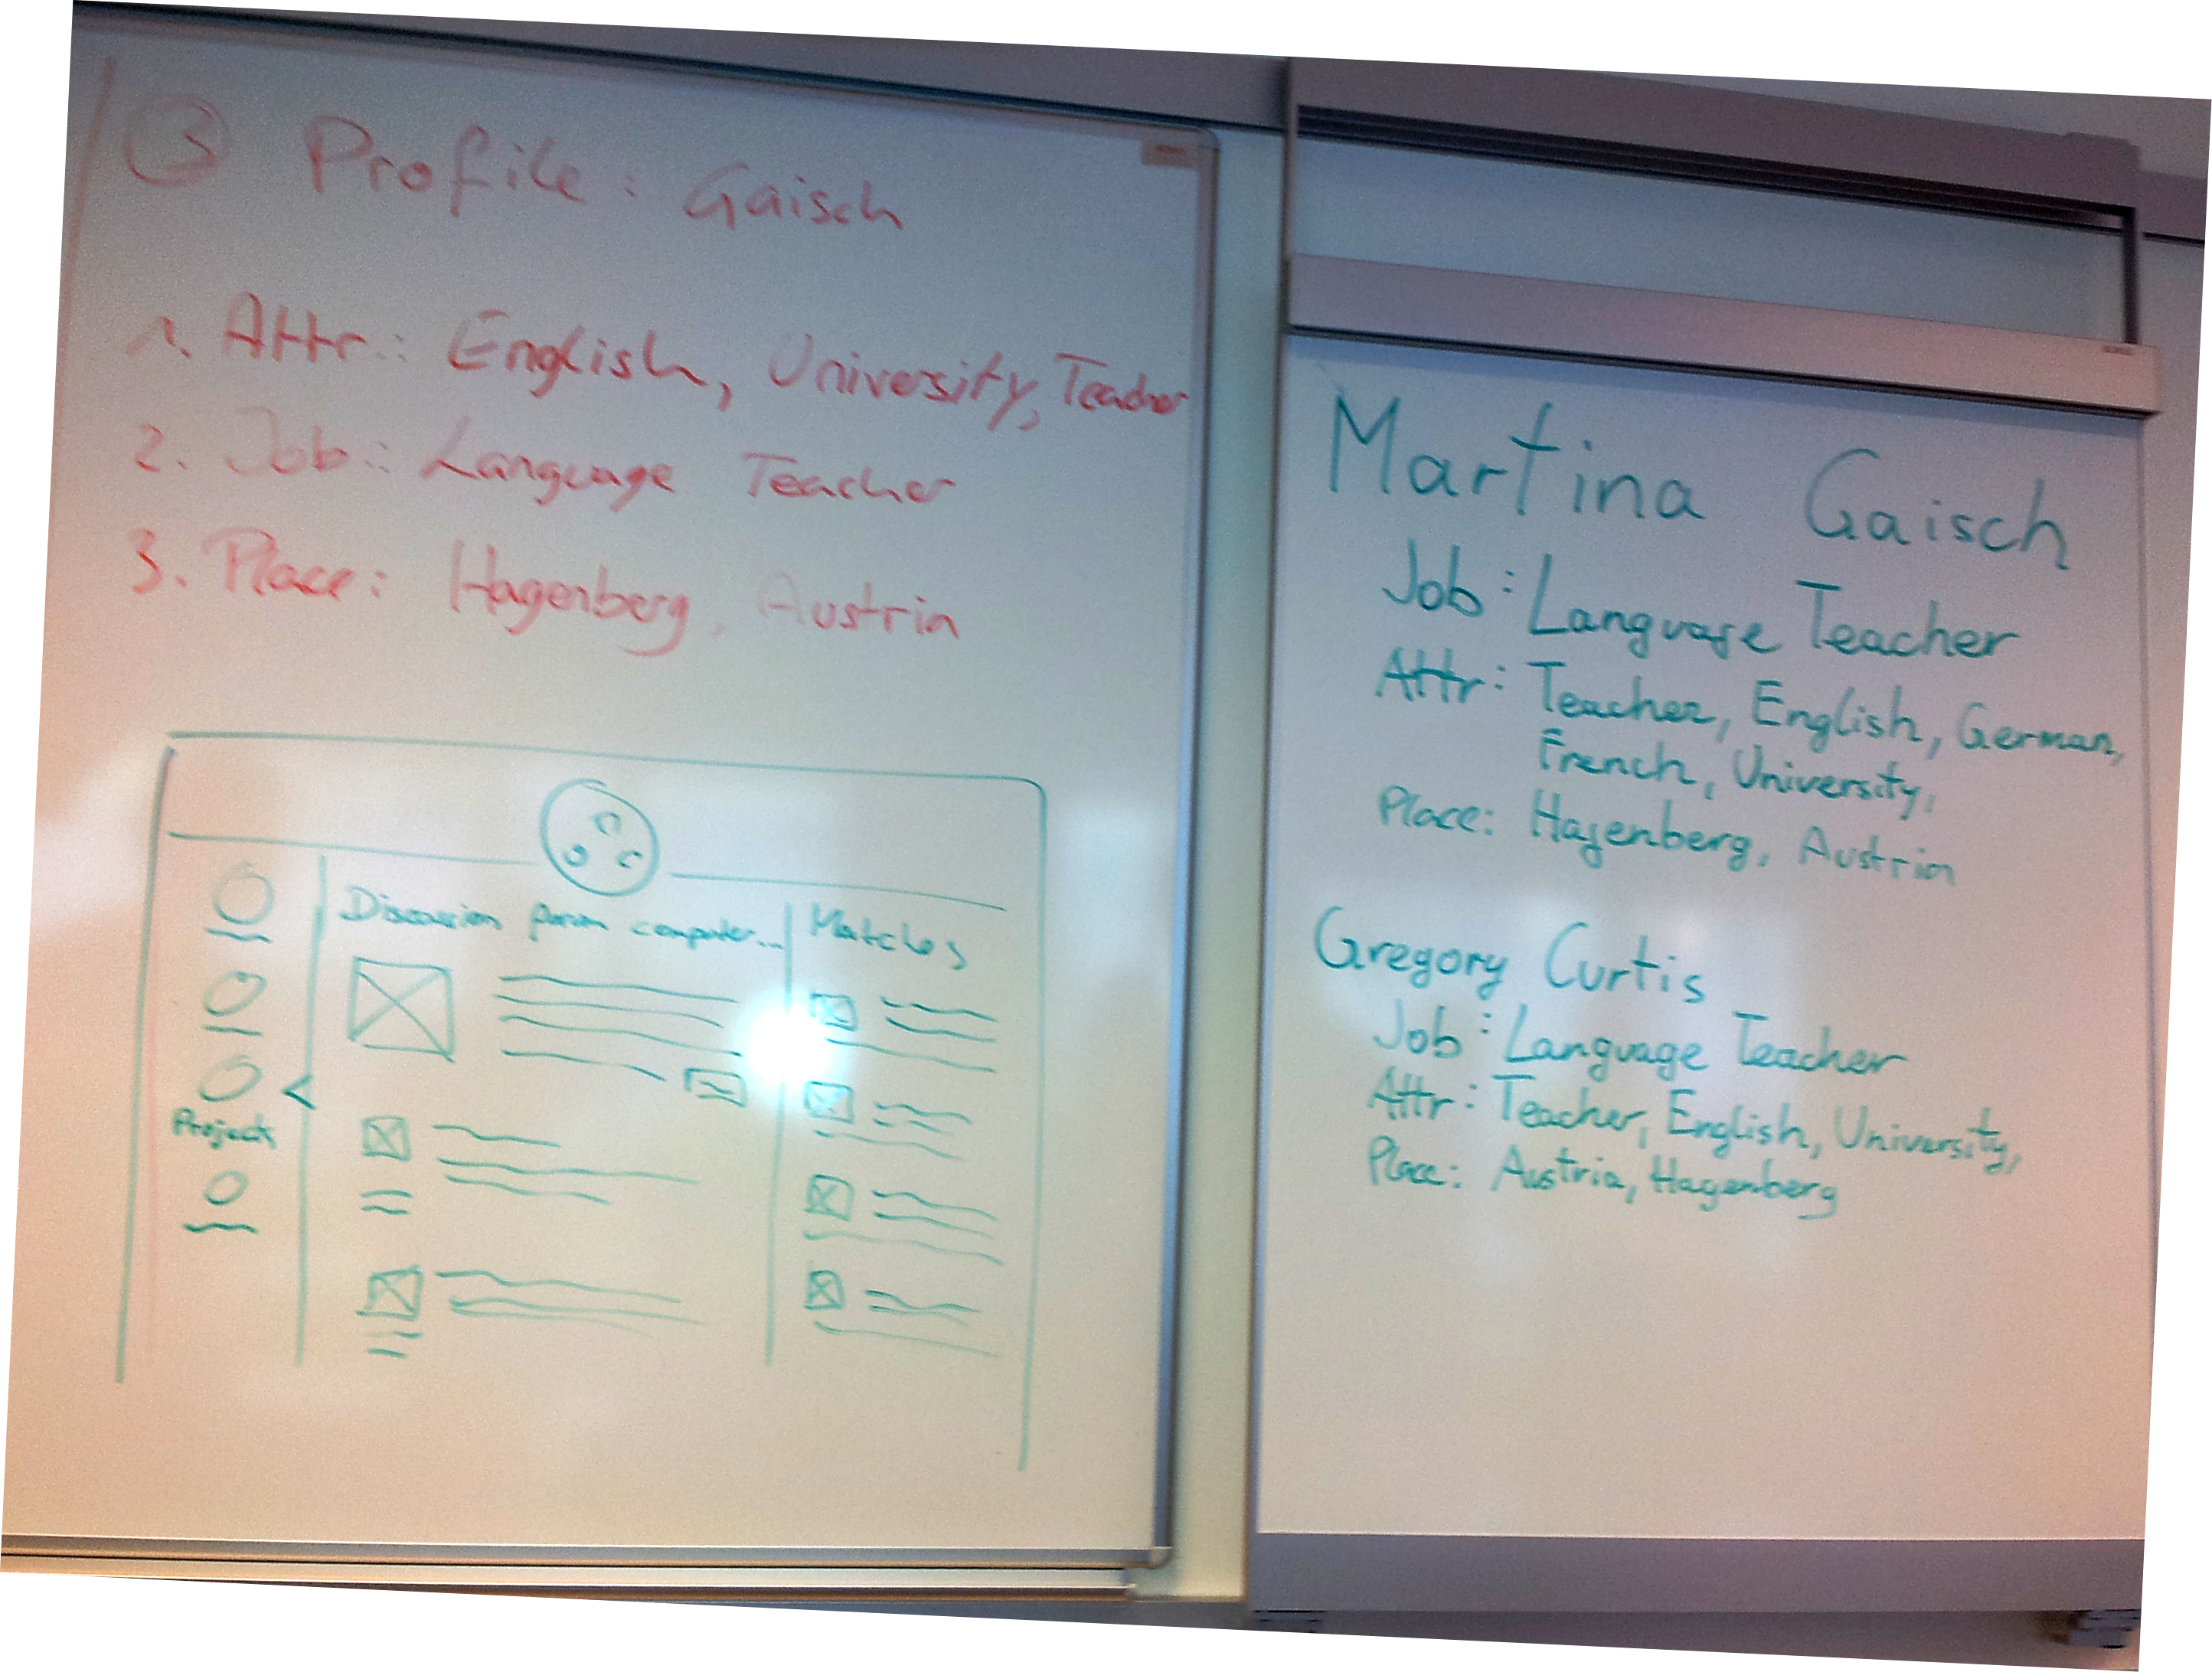 ③ Profile: Gaisch
1. Attr.: English, University, Teacher
2. Job: Language Teacher
3. Place: Hagenberg, Austria
Discussion computer...
Matches
Project
Martina Gaisch
Job: Language Teacher
Attr: Teacher, English, German,
French, University,
Place: Hagenberg, Austria
Gregory Curtis
Job: Language Teacher
Attr: Teacher, English, University,
Place: Austria, Hagenberg